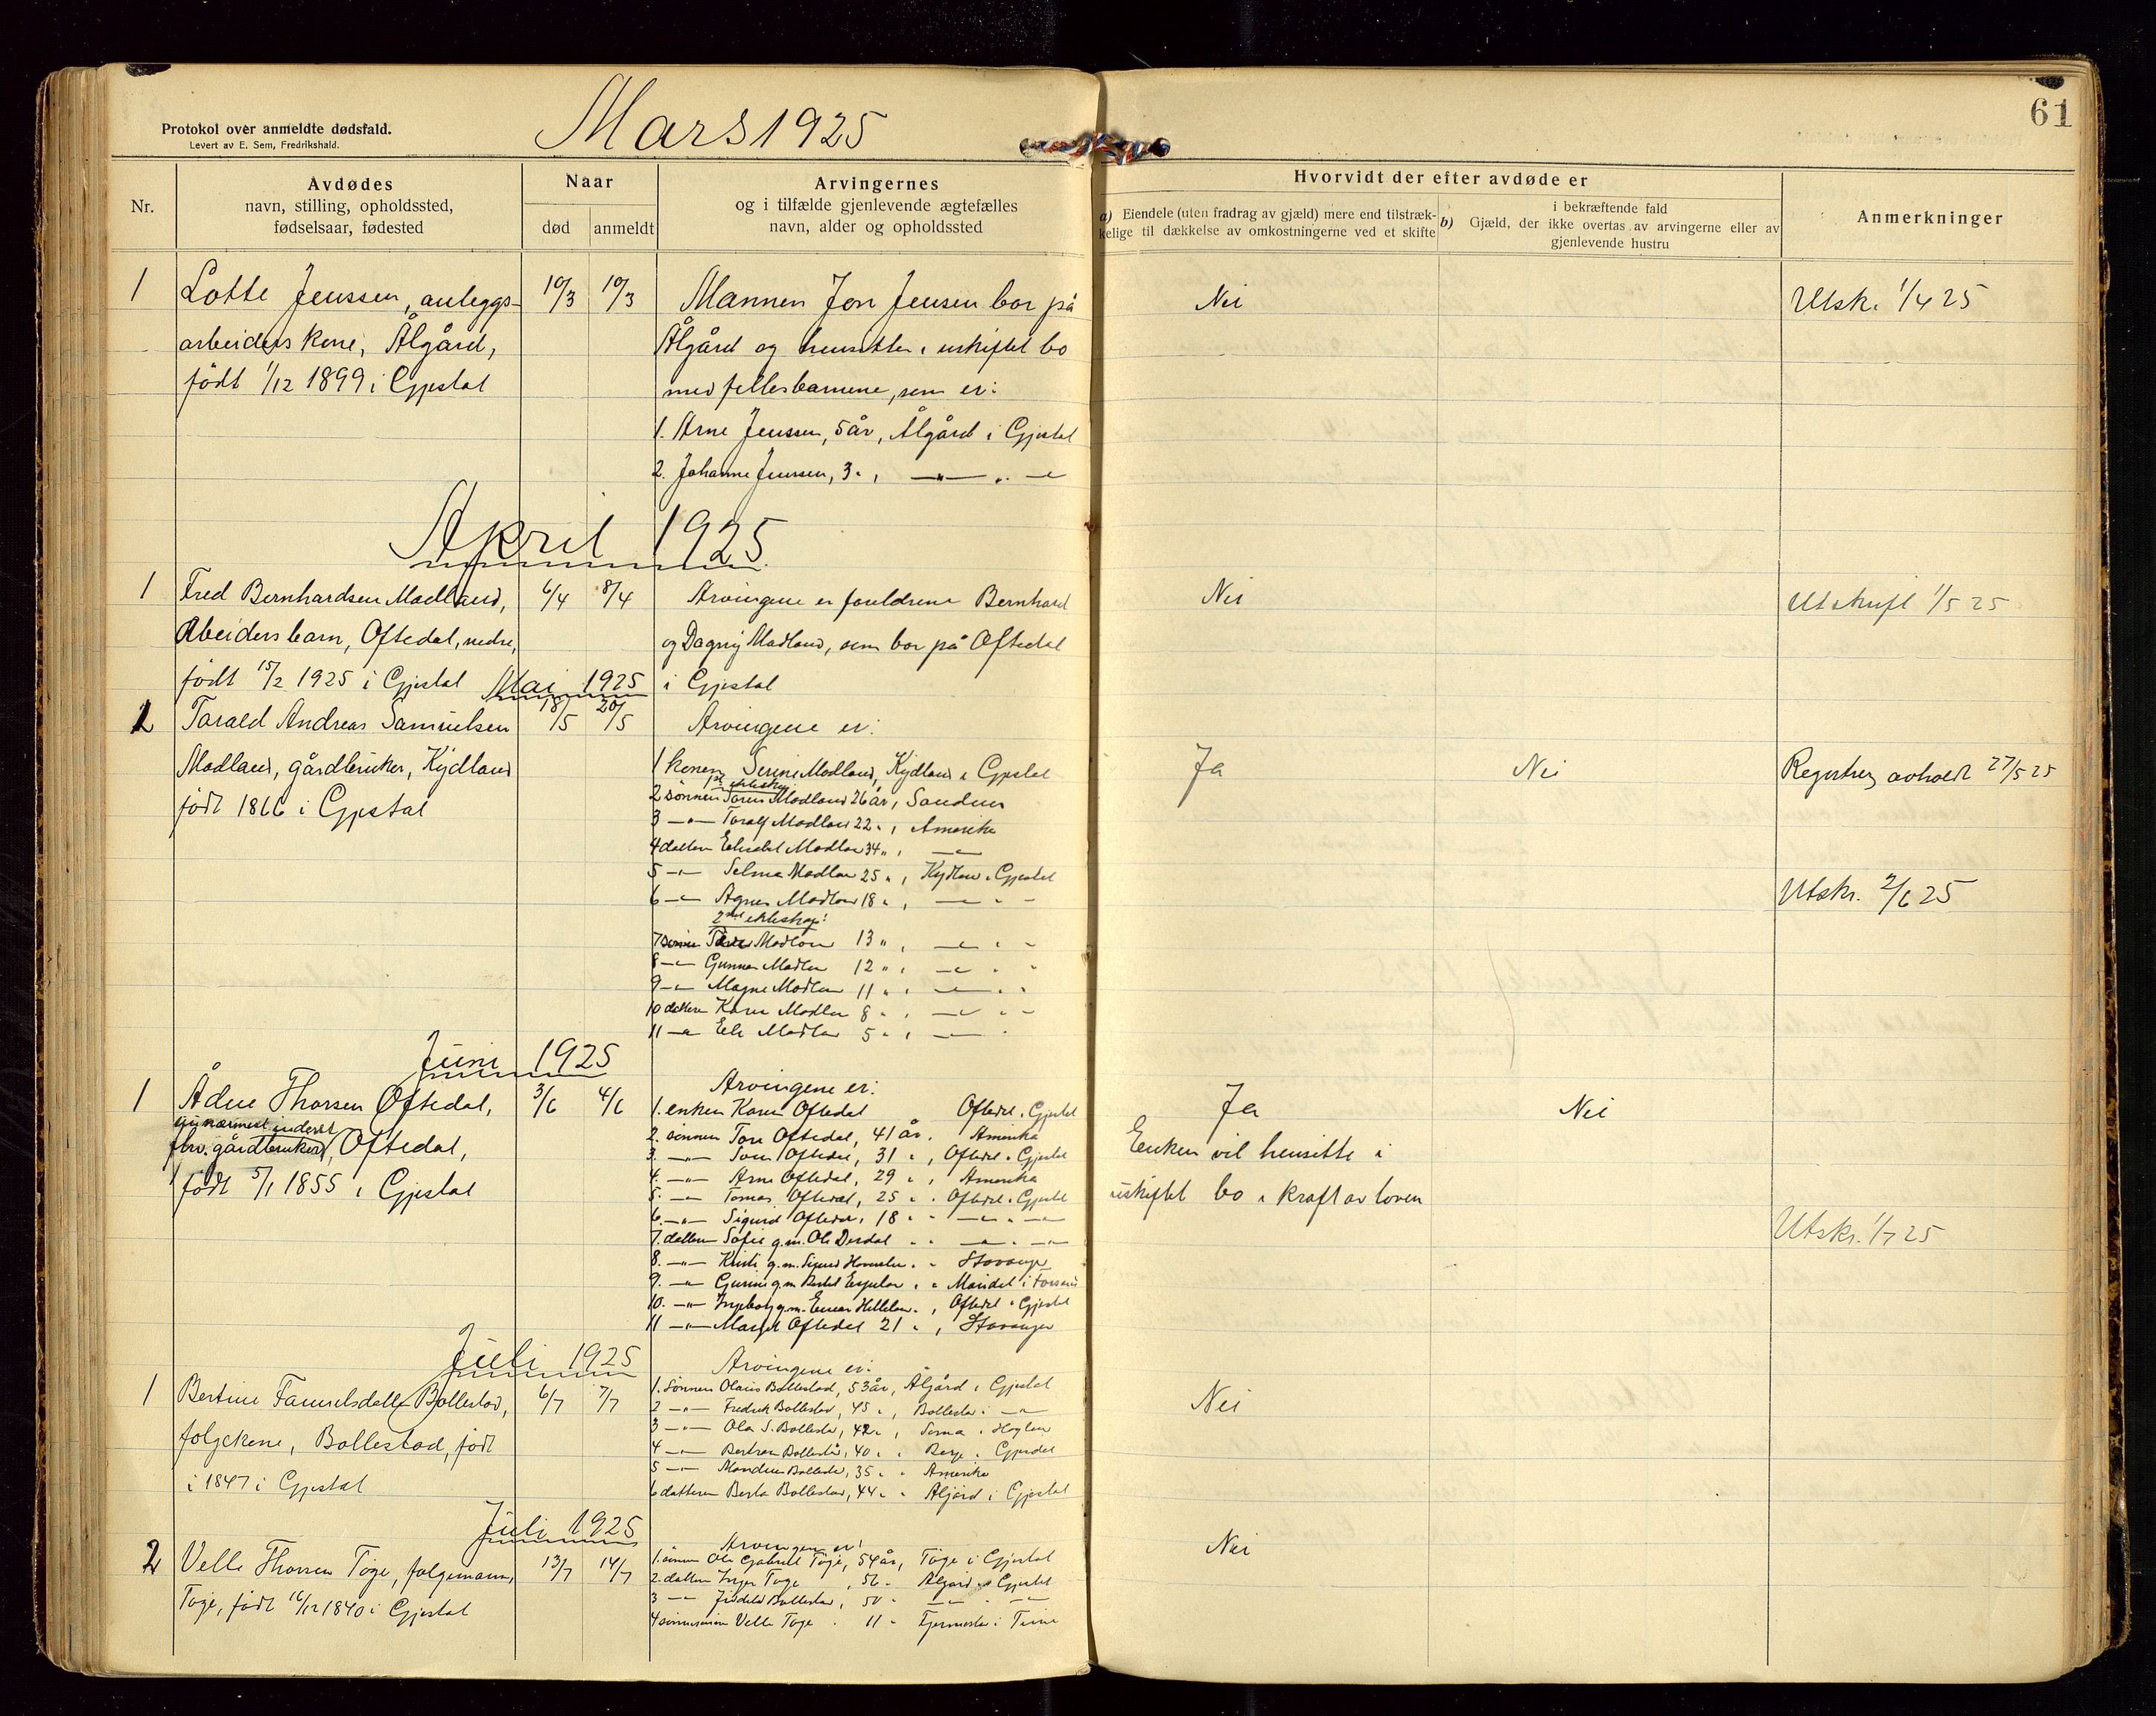 61
Protokol over anmeldte dødsfald.
Levert av E. Sem, Fredrikshald.
Mars 1925
Nr.
Avdødes
navn, stilling, opholdssted,
fødselsaar, fødested
Naar
død
anmeldt
Arvingernes
og i tilfælde gjenlevende ægtefælles
navn, alder og opholdssted
Hvorvidt der efter avdøde er
a) Eiendele (uten fradrag av gjæld) mere end tilstræk-
kelige til dækkelse av omkostningerne ved et skifte
i bekræftende fald
b) Gjæld, der ikke overtas av arvingerne eller av
gjenlevende hustru
Anmerkninger
1 Lotte Jenssen, anleggs- 10/3 10/3
arbeiders kone, Ålgård,
født 1/12 1899 i Gjestal
Mannen Jon Jensen bor på
Ålgård og hensitter i uskiftet bo
med fellesbarnene, som er:
1. Arne Jenssen, 5 år, Ålgård i Gjestal
2. Johanne Jenssen, 3 " , —"— " —"—
Nei
Utskr. 1/4 25
April 1925
1 Fred Bernhardsen Madland, 6/4 8/4
Arbeiders barn, Oftedal, nedre,
født 15/2 1925 i Gjestal
Arvingene er foreldrene Bernhard
og Dagny Madland, som bor på Oftedal
i Gjestal
Nei
Utskrift 1/5 25
Mai 1925
2 Tarald Andreas Samuelsen 18/5 20/5
Madland, gårdbruker, Kydland
født 1866 i Gjestal
Arvingene er:
1 konen Serine Madland, Kydland i Gjestal
1ste ekteskap
2 sønnen Madland 26 år, Sandnes
3 —"— Toralf Madland 22 " , Amerika
4 datteren Elisabet Madland 34 " , —"—
5 —"— Selma Madland 25 " , Kydland i Gjestal
6 —"— Agnes Madland 18 " , —"— " "
2net ekteskap:
7 sønnen Madland 13 " , —"— " "
8 —"— Gunnar Madland 12 " , —"— " "
9 —"— Magne Madland 11 " , —"— " "
10 datteren Karen Madland 8 " , —"— " "
11 —"— Madland 5 " , —"— "
Ja
Nei
Registrering avholdt 27/5 25
Utskr. 2/6 25
Juni 1925
1 Ådne Thorsen Oftedal, 3/6 4/6
fhv. gårdbruker, Oftedal,
født 5/1 1855 i Gjestal
Arvingene er:
1. enken Karen Oftedal Oftedal i Gjestal
2. sønnen Tore Oftedal, 41 år, Amerika
3. —"— Oftedal, 31 " , Oftedal i Gjestal
4. —"— Arne Oftedal, 29 " , Amerika
5. —"— Tomas Oftedal, 25 " , Oftedal i Gjestal
6. —"— Sigurd Oftedal, 18 " " —"— " —"—
7. datteren Sofie g.m. Ole Dirdal " " —"— " —"—
8. —"— g.m. Sigurd " " Stavanger
9. —"— g.m. " " i
10. —"— Ingeborg g.m. Einar " , Oftedal i Gjestal
11 —"— Margit Oftedal 21 " , Stavanger
Ja
Nei
Enken vil hensitte i
uskiftet bo i kraft av loven
Utskr. 1/7 25
Juli 1925
1 Bertine Bollestad, 6/7 7/7
folgekone, Bollestad, født
i 1847 i Gjestal
Arvingene er:
1. sønnen Olaus Bollestad, 53 år, Ålgård i Gjestal
2 —"— Fredrik Bollestad, 45 " , Bollestad i —"—
3 —"— Ola S. Bollestad, 42 " ,
4 —"— Bertram Bollestad, 40 " " i Gjestal
5 —"— Bollestad, 35 " " Amerika
6 datteren Berta Bollestad, 44 " " Ålgård i Gjestal
Nei
Juli 1925
2 Velle Thorsen Tøge, folgemann, 13/7 14/7
Tøge, født 16/12 1840 i Gjestal
Arvingene er:
1. sønnen Ole Gabriel Tøge, 54 år, Tøge i Gjestal
2. datteren Inger Tøge , 56 " Ålgård i Gjestal
3 —"— Bollestad, 50 " —"— " —"—
4 sønnesønn Velle Tøge " 11 " i Time
Nei